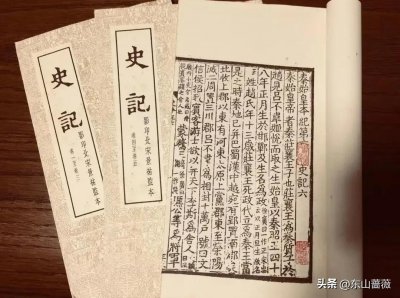 史記
影印北宋景祐監本
卷一至卷三
史記
影印北宋景祐監本
卷四至卷五
秦始皇本紀第 史記六
秦始皇帝者秦莊襄王子也莊襄王爲秦質子於
趙見呂不韋姬悅而取之生始皇以秦昭王四十
八年正月生於邯鄲及生名爲政
姓趙氏年十三歲莊襄王死政代立爲秦王當
是之時秦地已并巴蜀漢中越宛有郢置南郡矣北
收上郡以東有河東太原上黨郡東至滎陽
滅二周置三川郡呂不韋爲相封十萬戶號曰文
信侯招致賓客游士欲以并天下李斯爲舍人
蒙驁
公等爲將軍
头条 @东山蔷薇